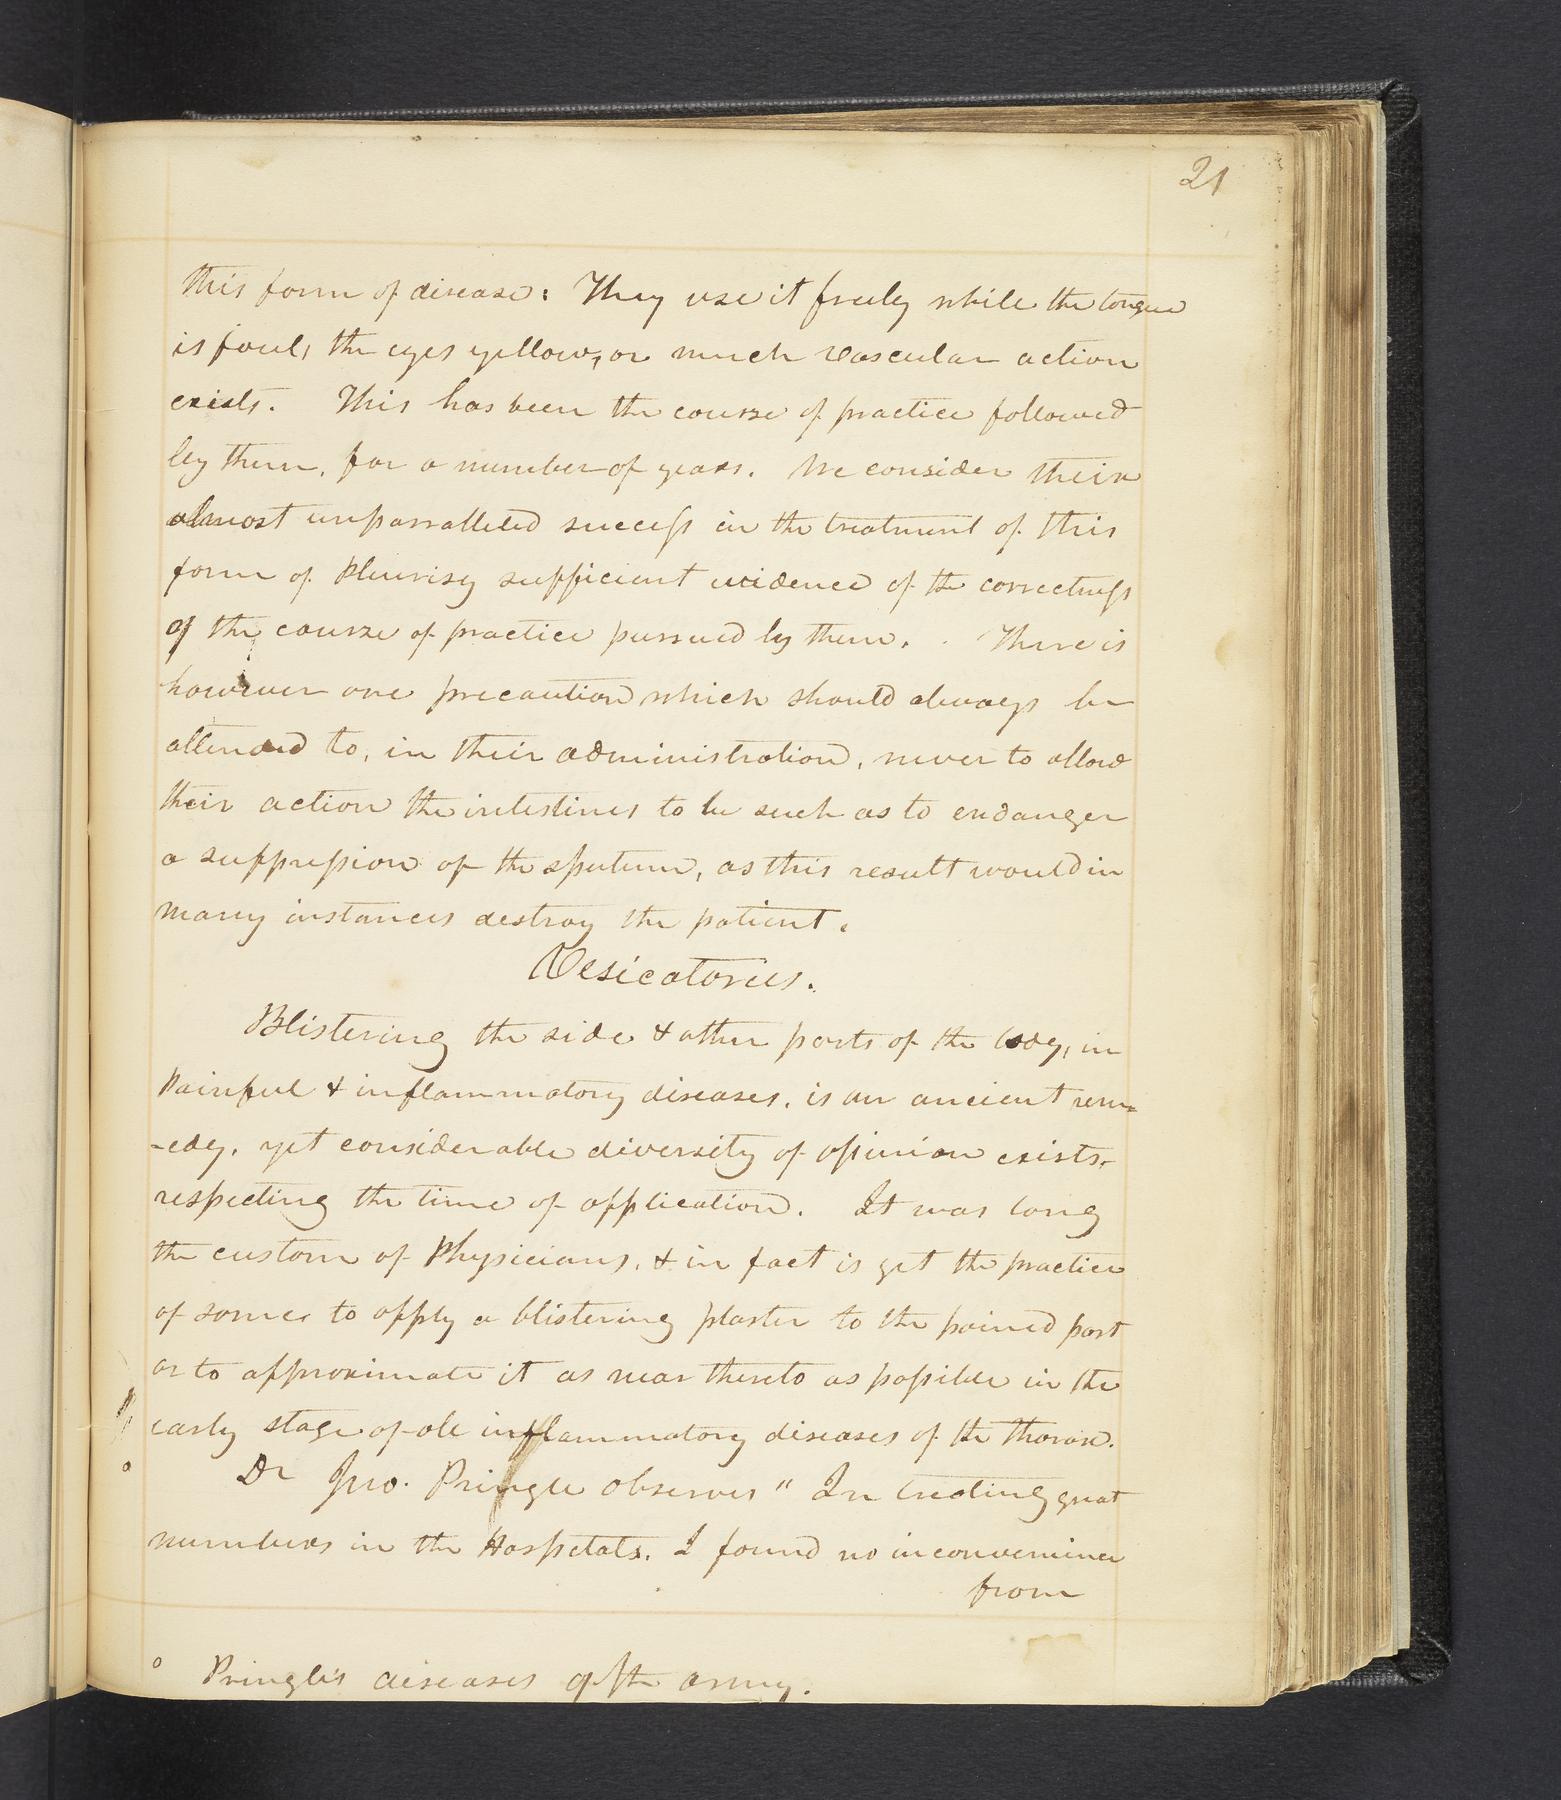 21
this form of disease: They use it freely while the tongue
is foul, the eyes yellow, or much vascular action
exists. This has been the course of practice followed
by them, for a number of years. We consider their
almost unparralleled success in the treatment of this
form of Pleurisy sufficient evidence of the correctness
of the course of practice pursued by them. There is
however one precaution which should always be
attended to, in their administration, never to allow
their action the intestines to be such as to endanger
a suppression of the sputum, as this result would in
many instances destroy the patient.
Vesicatories.
Blistering the side & other parts of the body, in
Painful & inflammatory diseases, is an ancient rem=
-edy, yet considerable diversity of opinion exists,
respecting the time of application. It was long
the custom of Physicians, & in fact is yet the practice
of some to apply a blistering plaster to the pained part
or to approximate it as near thereto as possible in the
early stage of all inflammatory diseases of the thorax.
o Dr Jno. Pringle observes "In treating great
numbers in the Hospetals. I found no inconvenience
from
o Pringle's diseases of the army.